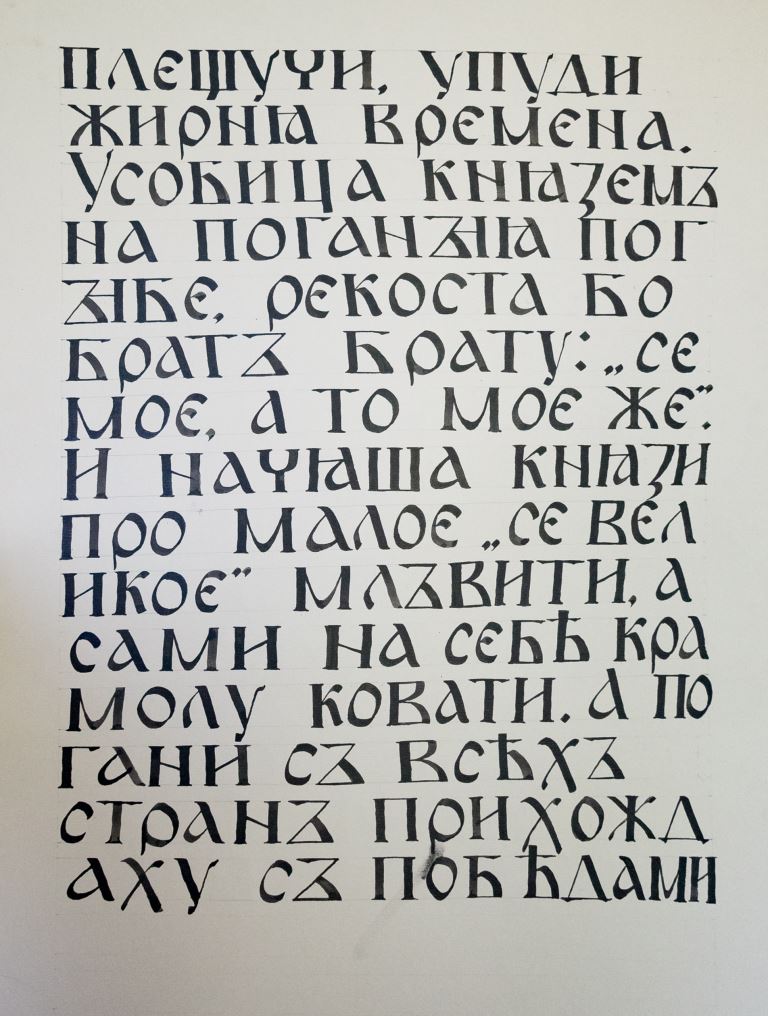 плещучи, упуди
жирнꙗ времена.
Усобица кнꙗземъ
на поганꙑꙗ пог
ꙑбе, рекоста бо
братъ брату: „се
мое, а то мое же“.
И начꙗша кнꙗзи
про малое „се вел
икое“ млъвити, а
сами на себѣ кра
молу ковати. А по
гани съ всѣхъ
странъ прихожд
аху съ побѣдами